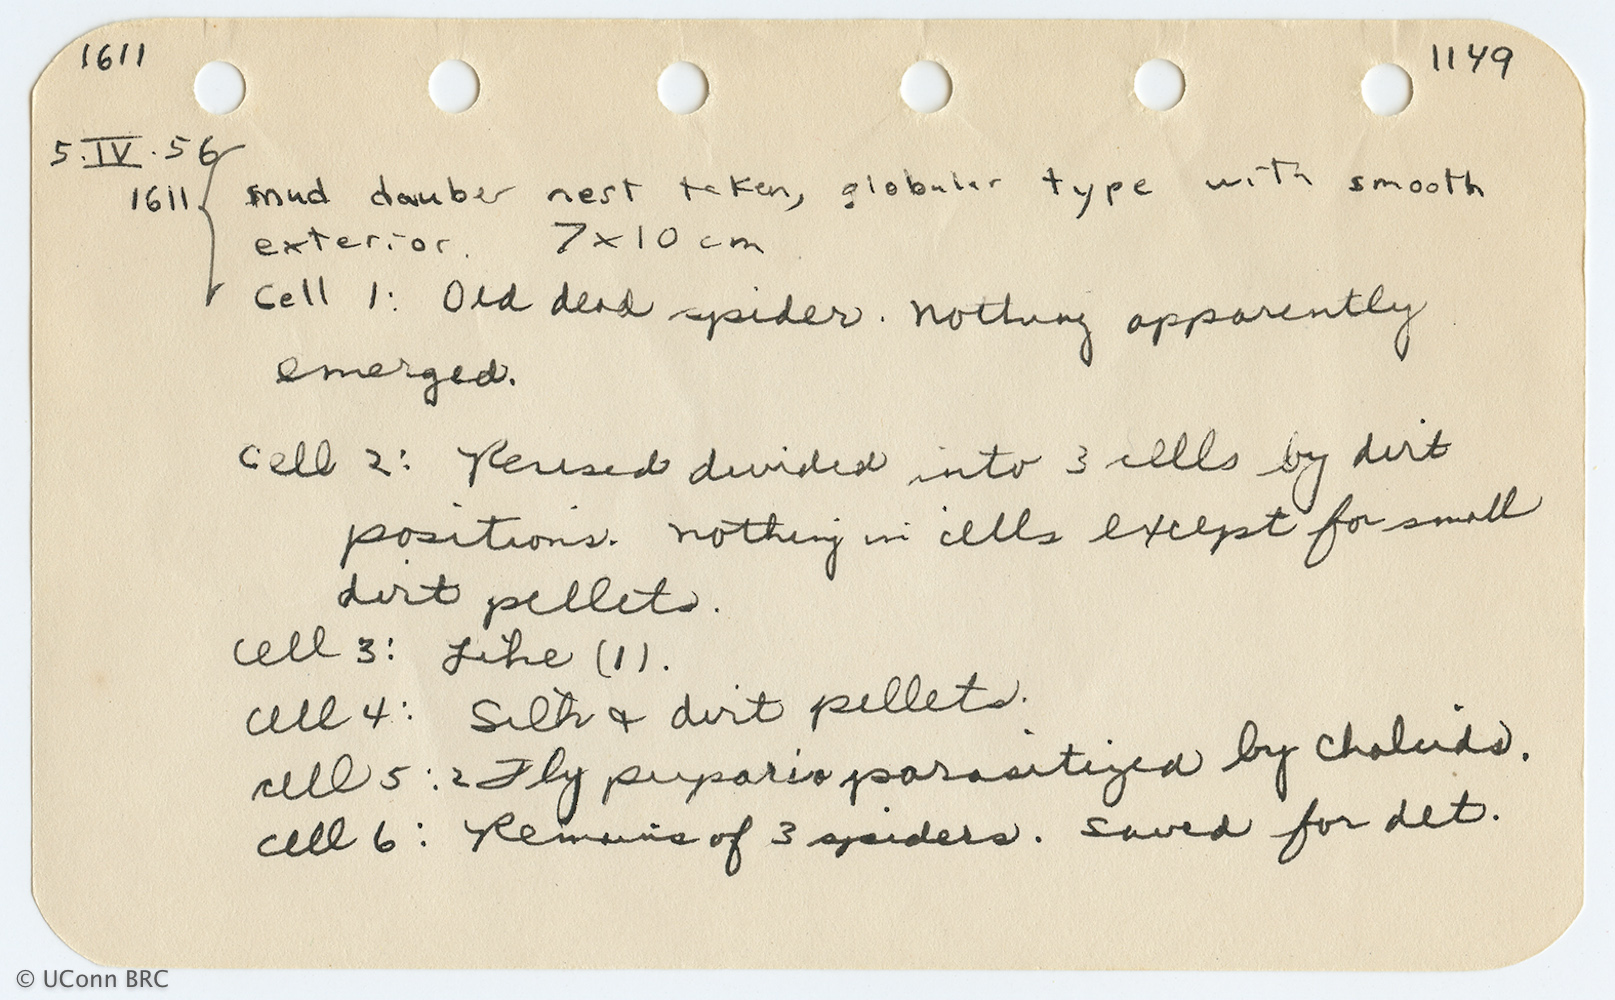 1611 1149
5.IV.56
1611 mud dauber nest taken, globular type with smooth
exterior. 7x10 cm
Cell 1: Old dead spider. Nothing apparently
emerged.
Cell 2: Reused divided into 3 cells by dirt
positions. Nothing in cells except for small
dirt pellets.
Cell 3: Like (1).
Cell 4: Silk & dirt pellets.
Cell 5: 2 Fly puparia parasitized by chalcids.
Cell 6: Remains of 3 spiders. Saved for det.
© UConn BRC